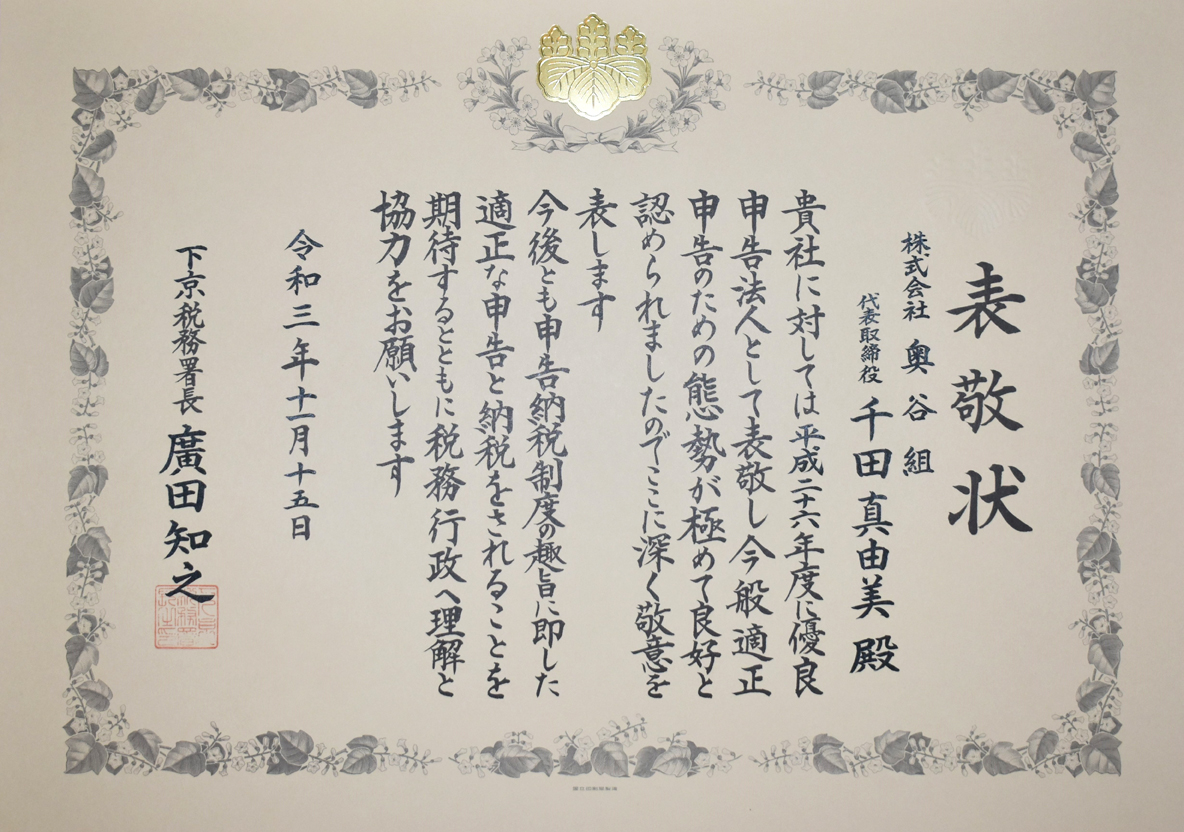 表敬状
株式会社 奥谷組
代表取締役 千田真由美 殿
貴社に対しては平成二十六年度に優良
申告法人として表敬し今般適正
申告のための態勢が極めて良好と
認められましたのでここに深く敬意を
表します
今後とも申告納税制度の趣旨に即した
適正な申告と納税をされることを
期待するとともに税務行政へ理解と
協力をお願いします
令和三年十一月十五日
下京税務署長 廣田知之